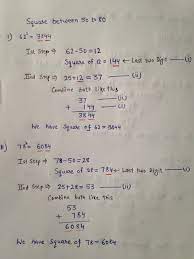 Square between 50 to 80
1) 62² = 3844
Ist Step → 62-50=12
Square of 12 = 144 ← Last two Digit — (i)
IInd Step → 25+12 = 37 — (ii)
Combine both like this
37 — (ii)
+ 144 — (i)
3844
We have Square of 62 = 3844
78² = 6084
Ist Step → 78-50=28
Square of 28 = 784 ← Last two Digit — (i)
IInd Step → 25+28 = 53 — (ii)
Combine both like this
53
+ 784
6084
We have Square of 78 = 6084